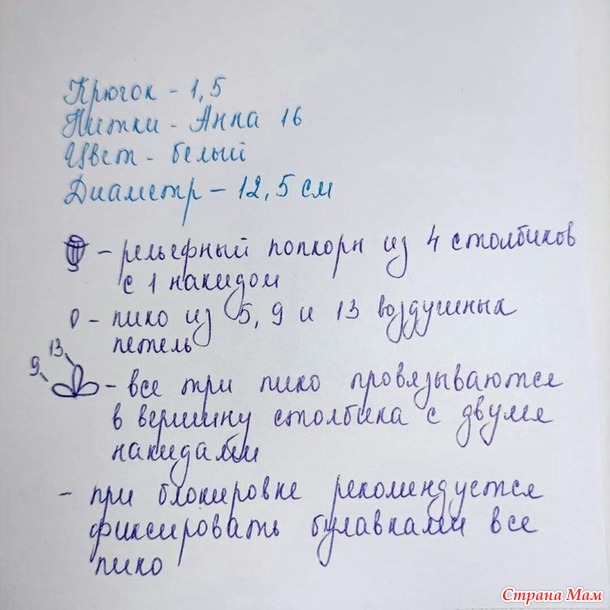 Крючок - 1,5
Нитки - Анна 16
Цвет - белый
Диаметр - 12,5 см
- рельефный попкорн из 4 столбиков
с 1 накидом
- пико из 5, 9 и 13 воздушных
петель
13
9
- все три пико провязываются
в вершину столбика с двумя
накидами
- при блокировке рекомендуется
фиксировать булавками все
пико
Страна Мам